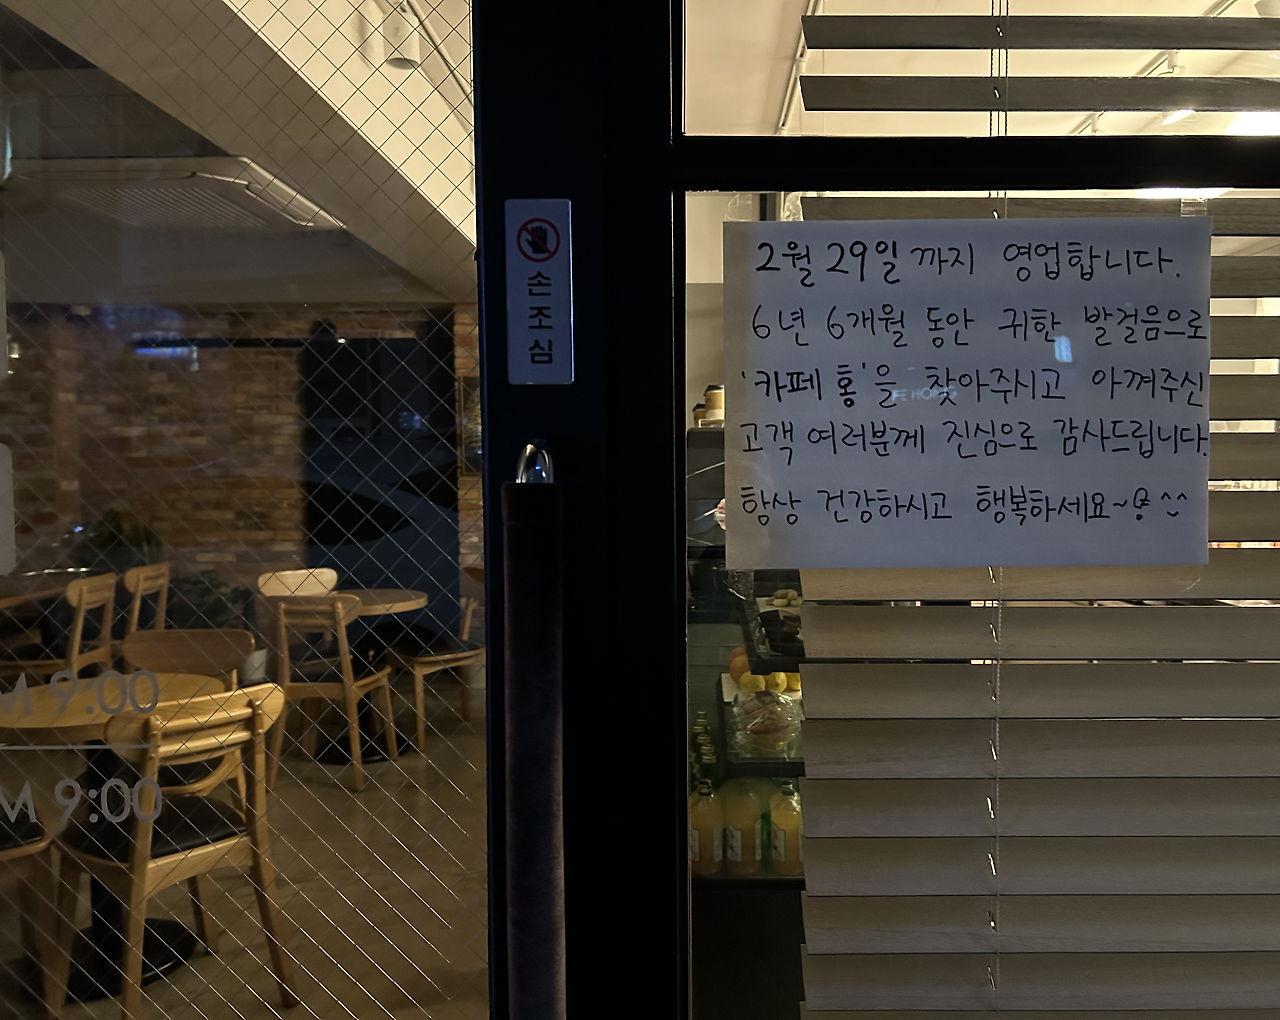 M 9:00
M 9:00
손조심
2월 29일 까지 영업합니다.
6년 6개월 동안 귀한 발걸음으로
'카페 홍'을 찾아주시고 아껴주신
고객 여러분께 진심으로 감사드립니다.
항상 건강하시고 행복하세요~ ^^